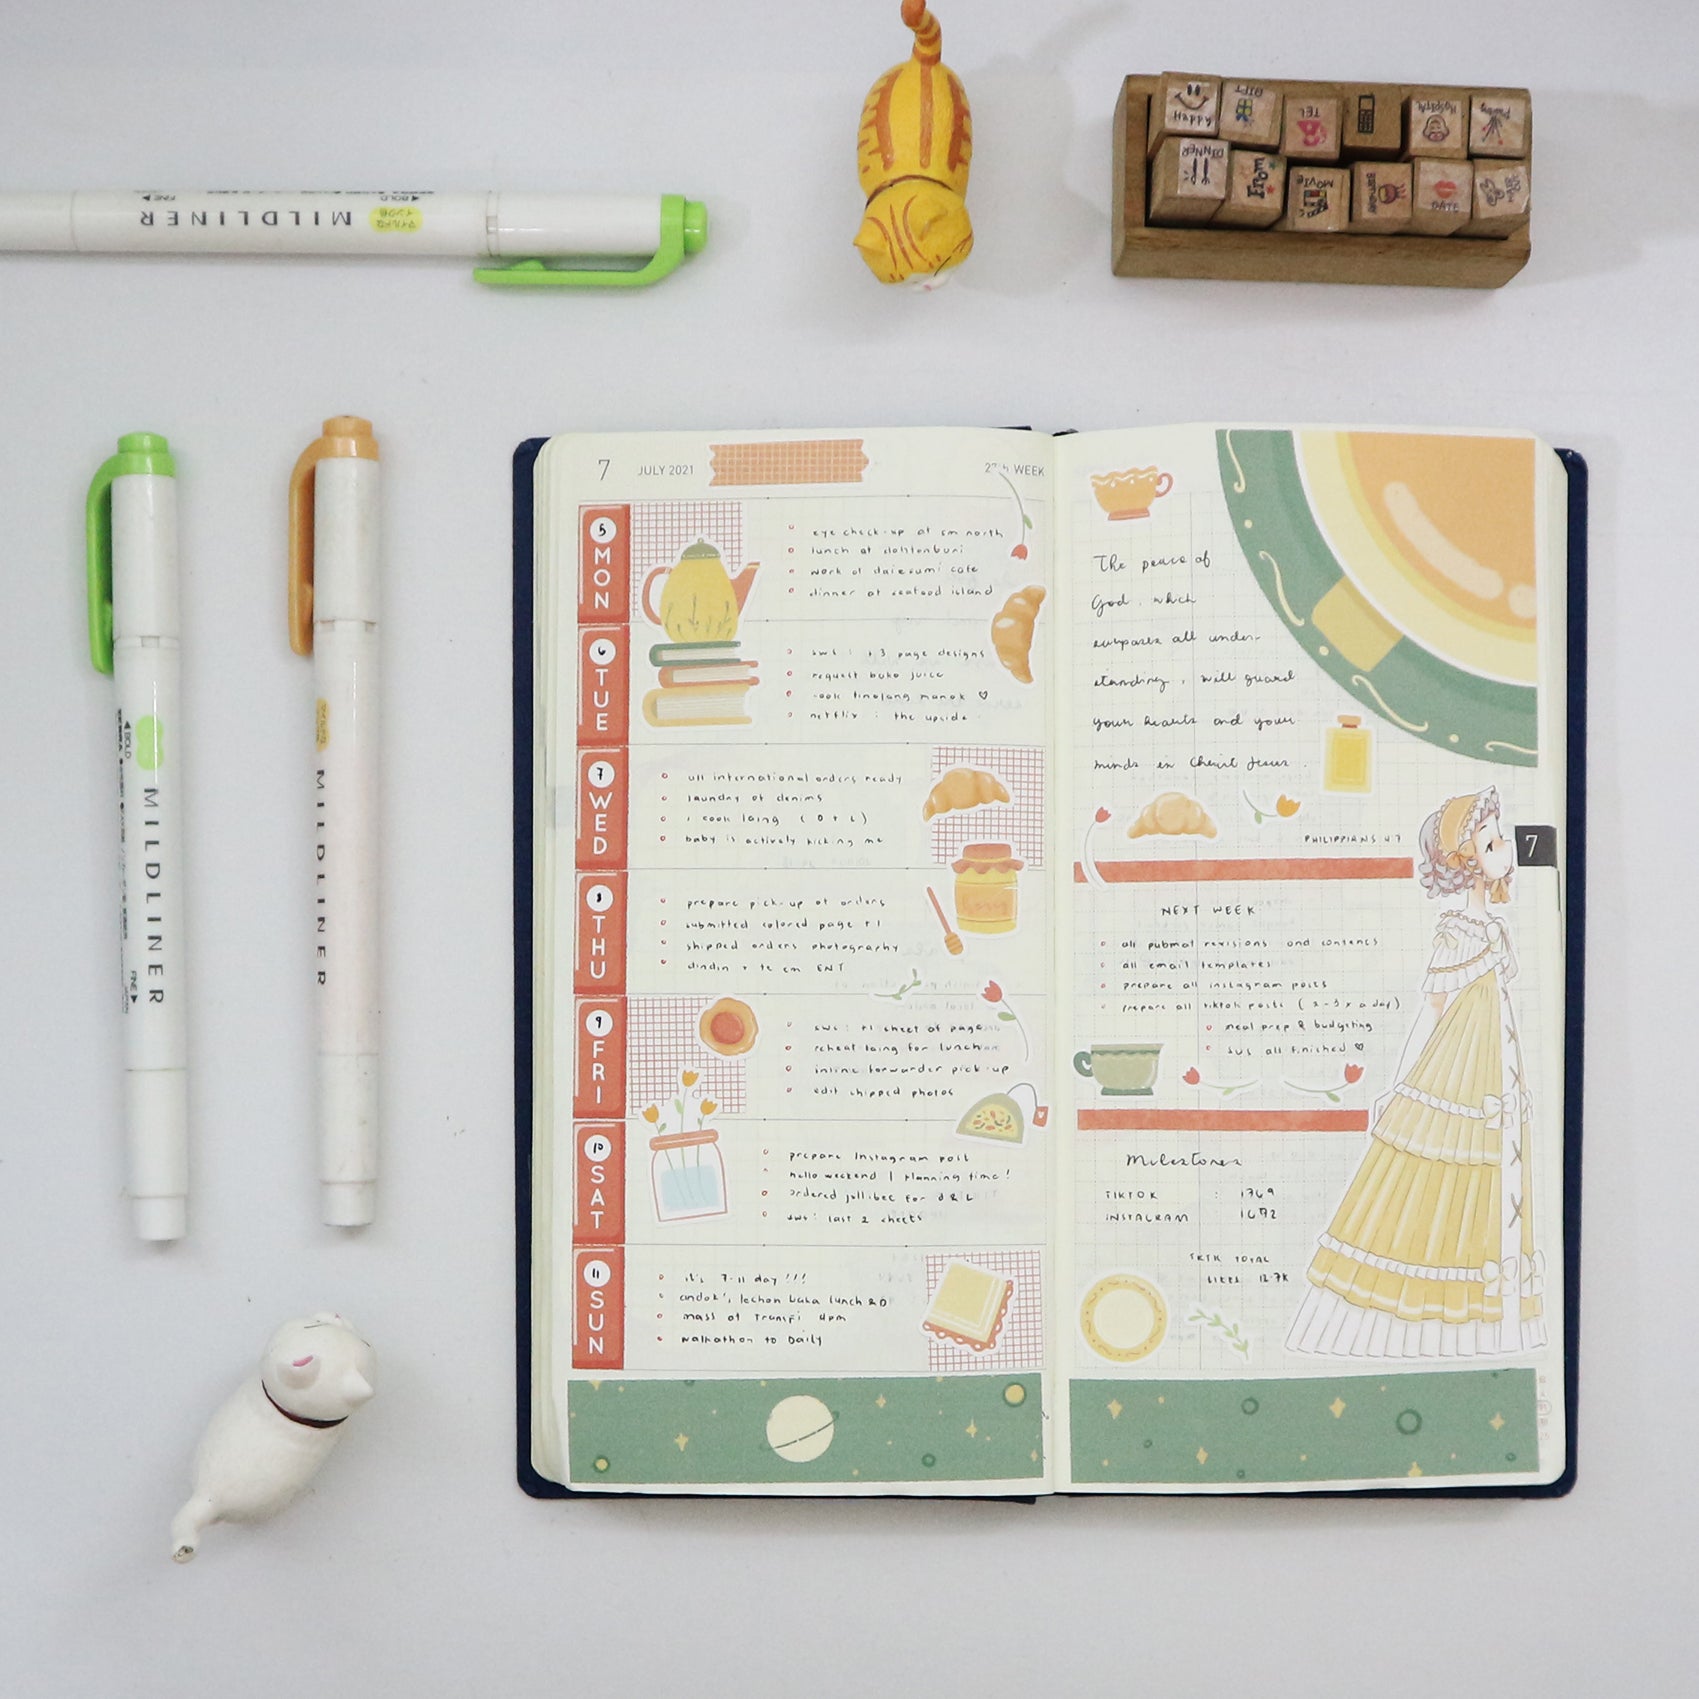 MILDLINER
マイルドな
インク色
FINE
BOLD
Happy
GIFT
TEL
HOSPITAL
DINNER
From
MOVIE
BIRTHDAY
DATE
BOLD
ZEBRA
MILDLINER
FINE
MILDLINER
7 JULY 2021
WEEK
5 MON
eye check-up at sm north
lunch at
work at cafe
dinner at seafood island
6 TUE
sws : +3 page designs
request buko juice
cook tinolang manok ♡
netflix : the upside
7 WED
all international orders ready
laundry of denims
i cook laing ( D + L )
baby is actively kicking me
8 THU
prepare pick-up of orders
submitted colored page +1
shipped orders photography
dindin + te em ENT
9 FRI
sws : +1 sheet of page
reheat laing for lunch
inline forwarder pick-up
edit shipped photos
10 SAT
prepare Instagram post
hello weekend | planning time !
ordered jollibee for d & L
sws : last 2 sheets
11 SUN
it's 7-11 day !!!
andok's lechon baka lunch & D
mass at Transfi 4pm
walkathon to Daily
The peace of
God, which
surpasses all under-
standing, will guard
your hearts and your
minds in Christ Jesus.
PHILIPPIANS 4:7
7
NEXT WEEK
all pubmat revisions and contents
all email templates
prepare all instagram posts
prepare all tiktok posts ( 2-3 x a day)
meal prep & budgeting
sws all finished ♡
Milestones
TIKTOK : 1769
INSTAGRAM : 1672
TKTK TOTAL
LIKES 12.7K